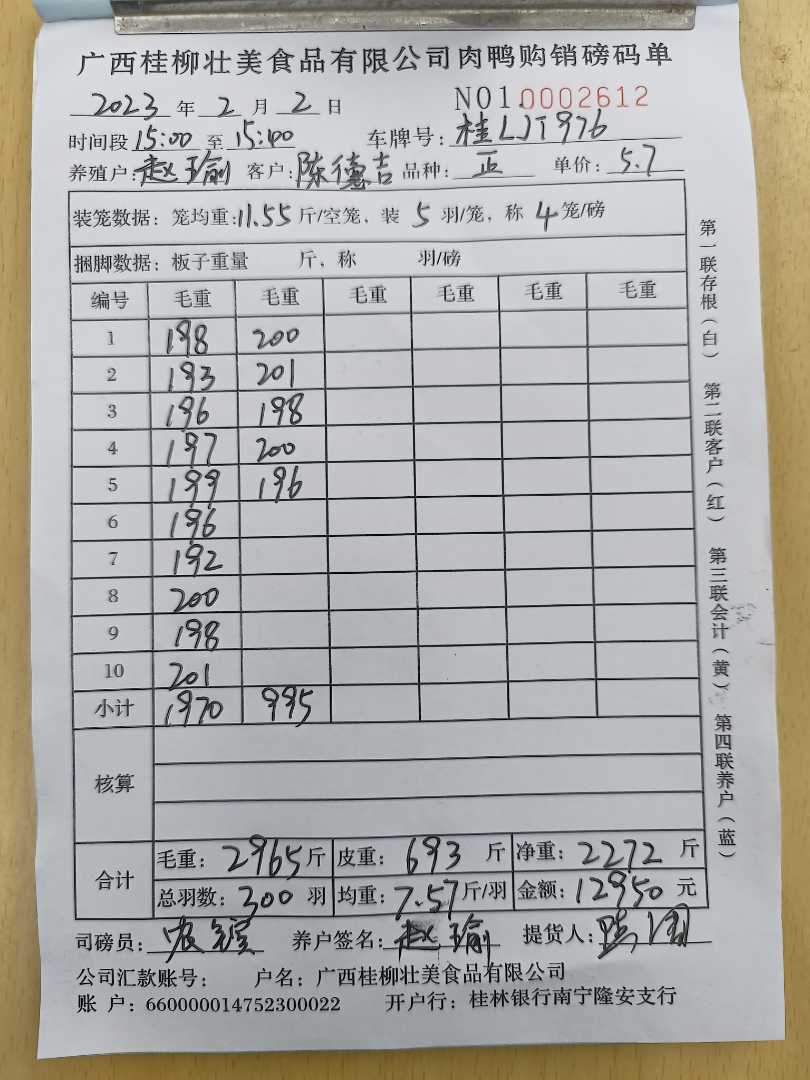 广西桂柳壮美食品有限公司肉鸭购销磅码单
2023 年 2 月 2 日 NO1.0002612
时间段 15:00 至 15:40 车牌号: 桂LJT976
养殖户: 赵瑜 客户: 陈德吉 品种: 正 单价: 5.7
装笼数据: 笼均重: 11.55 斤/空笼, 装 5 羽/笼, 称 4 笼/磅
捆脚数据: 板子重量 斤, 称 羽/磅
编号 毛重 毛重 毛重 毛重 毛重 毛重
1 198 200
2 193 201
3 196 198
4 197 200
5 199 196
6 196
7 192
8 200
9 198
10 201
小计 1970 995
核算
合计
毛重: 2965 斤 皮重: 693 斤 净重: 2272 斤
总羽数: 300 羽 均重: 7.57 斤/羽 金额: 12950 元
司磅员: 养户签名: 赵瑜 提货人:
公司汇款账号: 户名: 广西桂柳壮美食品有限公司
账 户: 660000014752300022 开户行: 桂林银行南宁隆安支行
第一联存根(白) 第二联客户(红) 第三联会计(黄) 第四联养户(蓝)